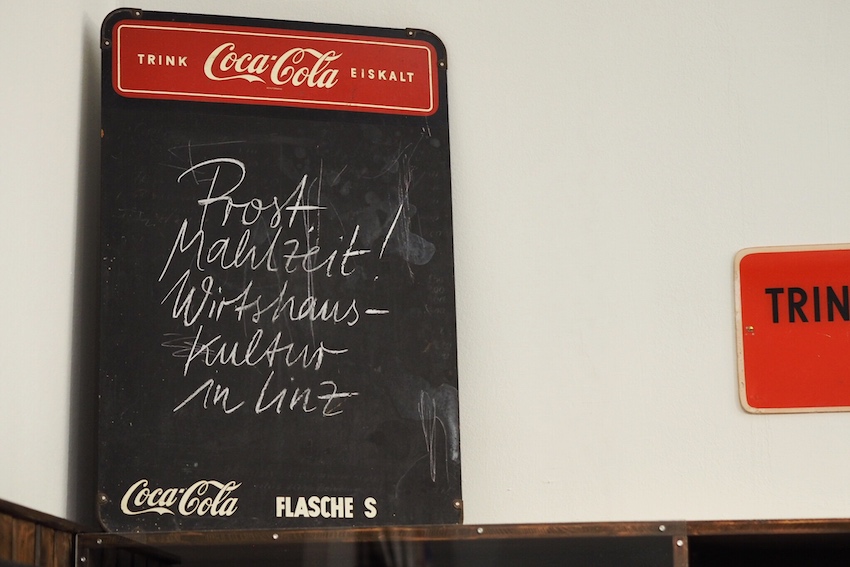 TRINK Coca-Cola EISKALT
Prost
Mahlzeit!
Wirtshaus-
Kultur
in Linz
Coca-Cola FLASCHE S
TRIN